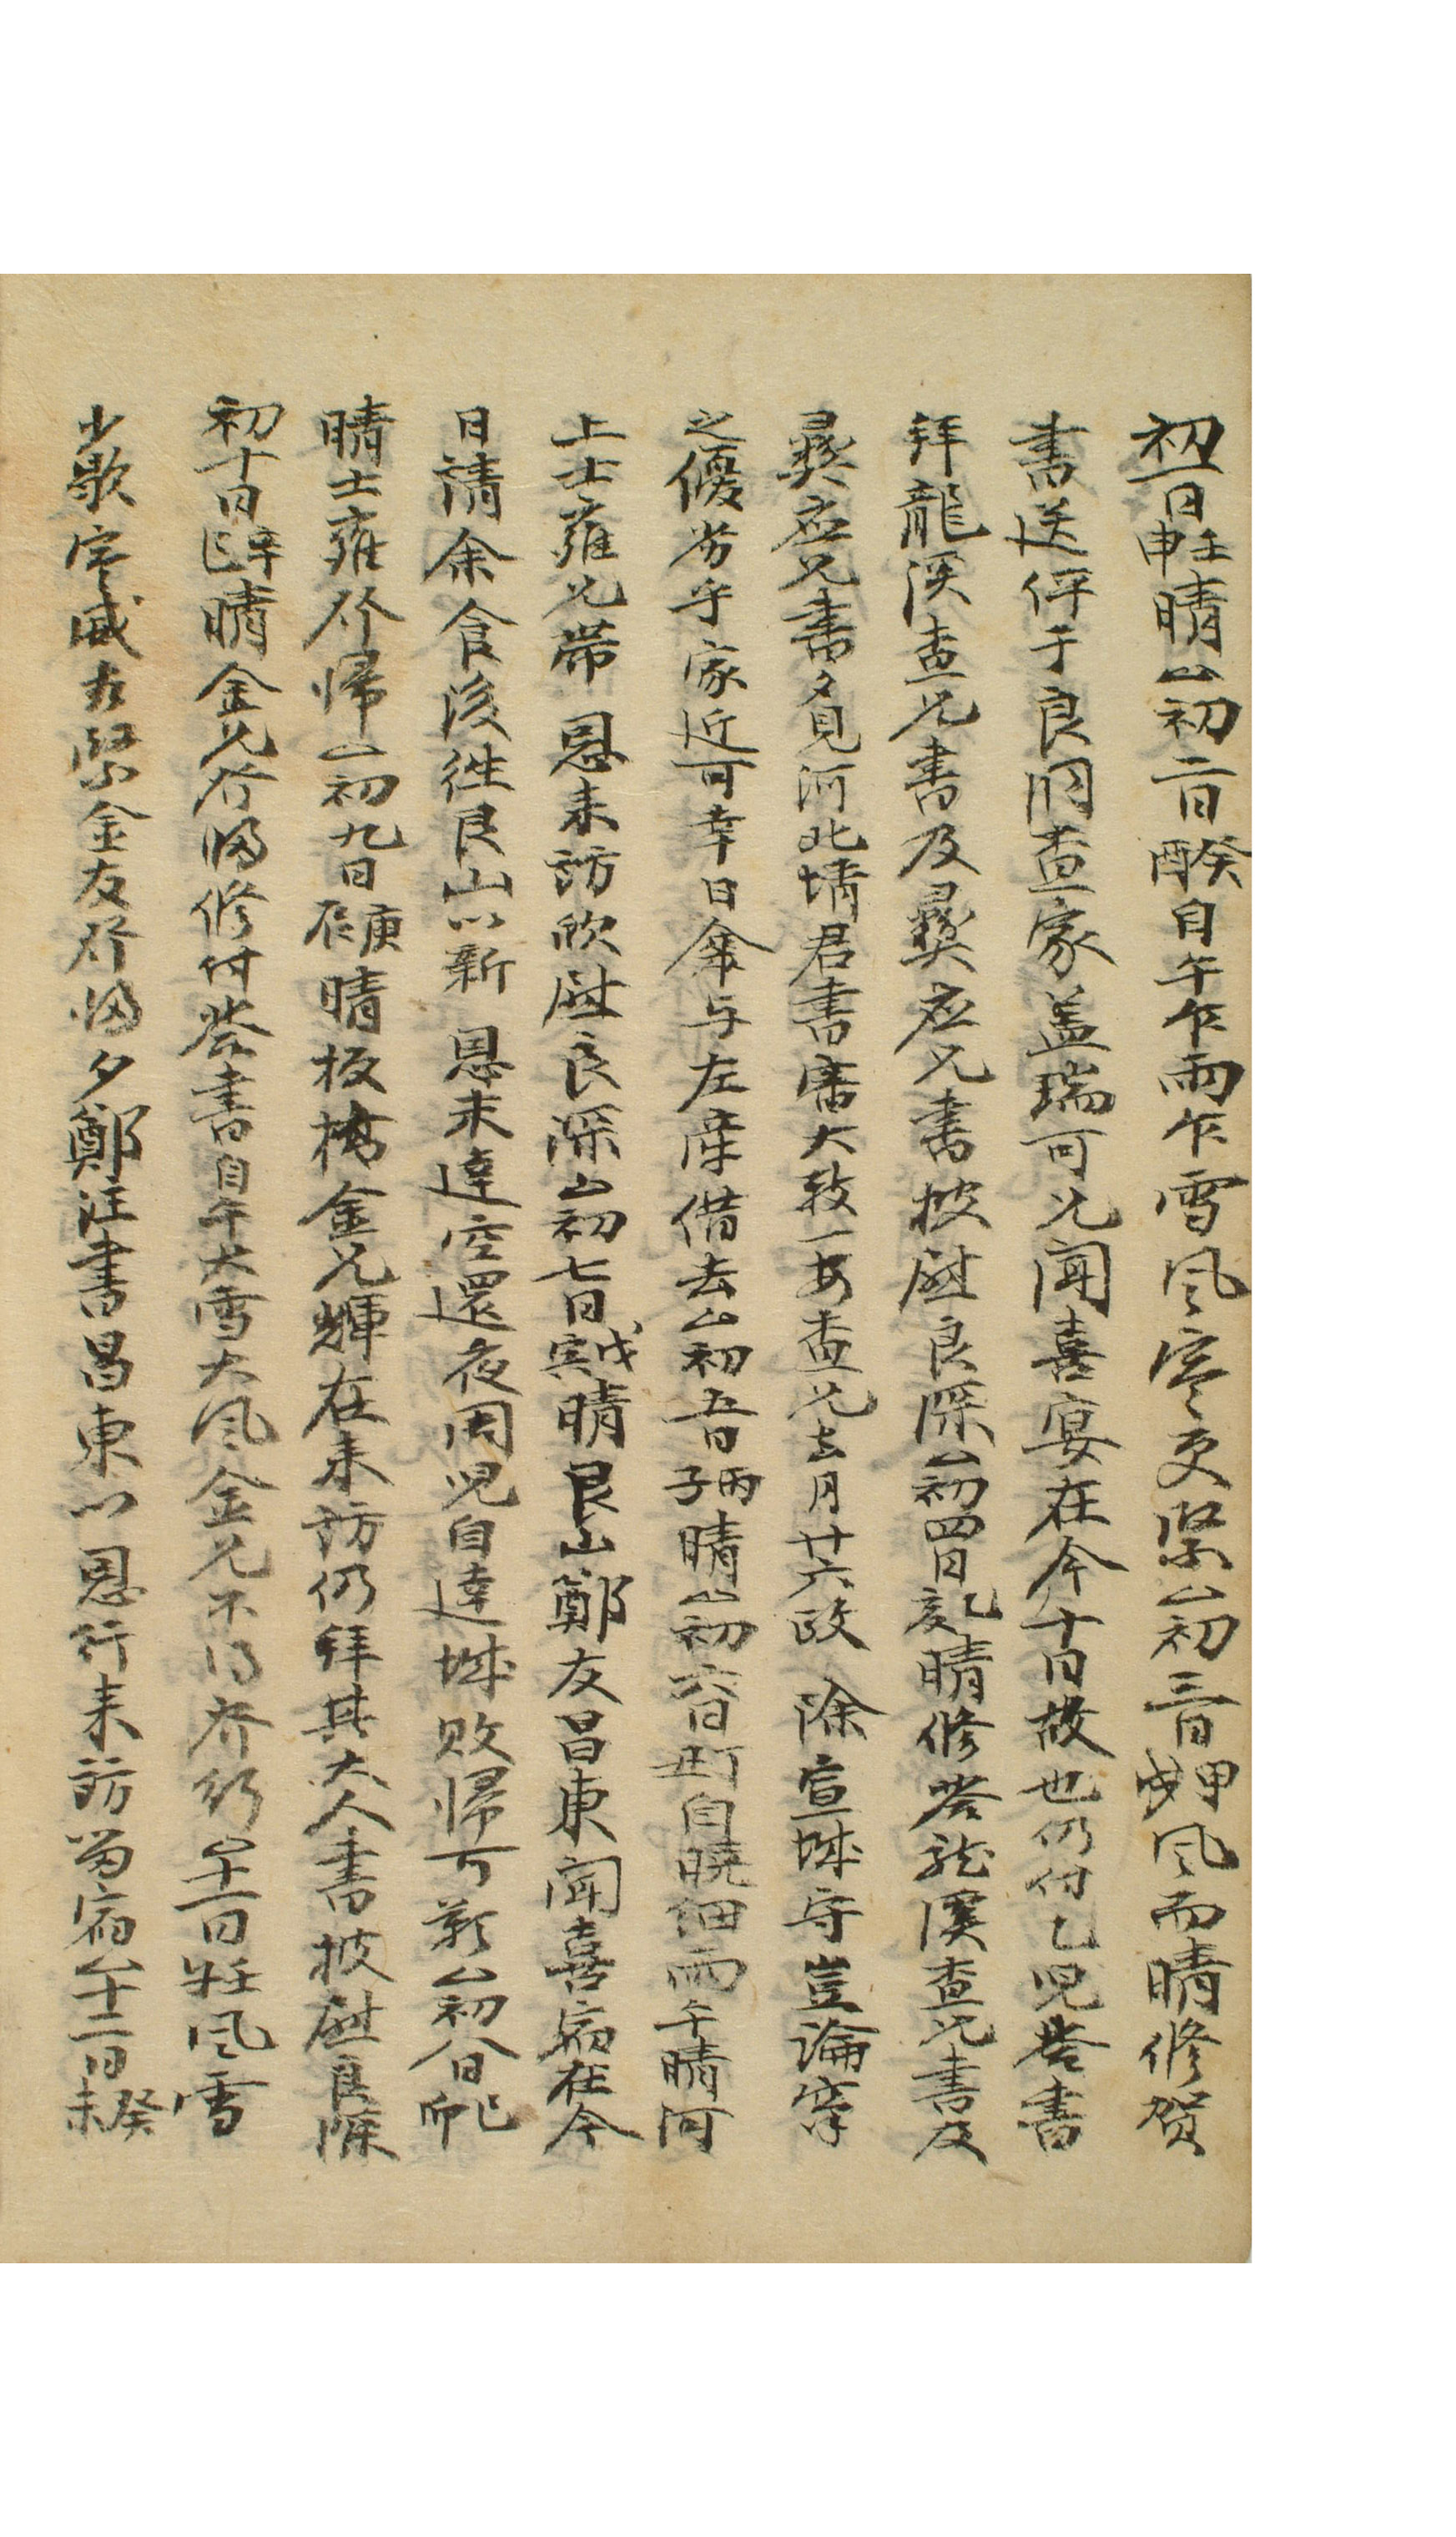 初一日壬申晴△初二日癸酉自午乍雨乍雪風寒更緊△初三日甲戌風而晴修賀
書送伻于良洞査家盖瑞可兄聞喜宴在今十日故也仍付乙児答書
拜龍溪査兄書及彛应兄書披慰良深△初四日乙亥晴修答龍溪査兄書及
彛应兄書夕見河北壻君書審大致一安査兄去月廿六政 除宣城守豈論宰
之優劣乎家近可幸日傘与左産借去△初五日丙子晴△初六日丁丑自曉細雨午晴河
上士雍兄帶 恩來訪欣慰良深△初七日戊寅晴艮山鄭友昌東聞喜宴在今
日請余食後徃艮山以新 恩未達空還夜周児自達城敗帰可歎△初八日己卯
晴士雍介帰△初九日庚辰晴板橋金兄輝在来訪仍拜其大人書披慰良深
初十日辛巳晴金兄介歸修付答書自午大雪大風金兄不得介行△十一日壬午風雪
少歇寒威太緊金友介歸夕鄭注書昌東以 恩行来訪留宿△十二日癸未